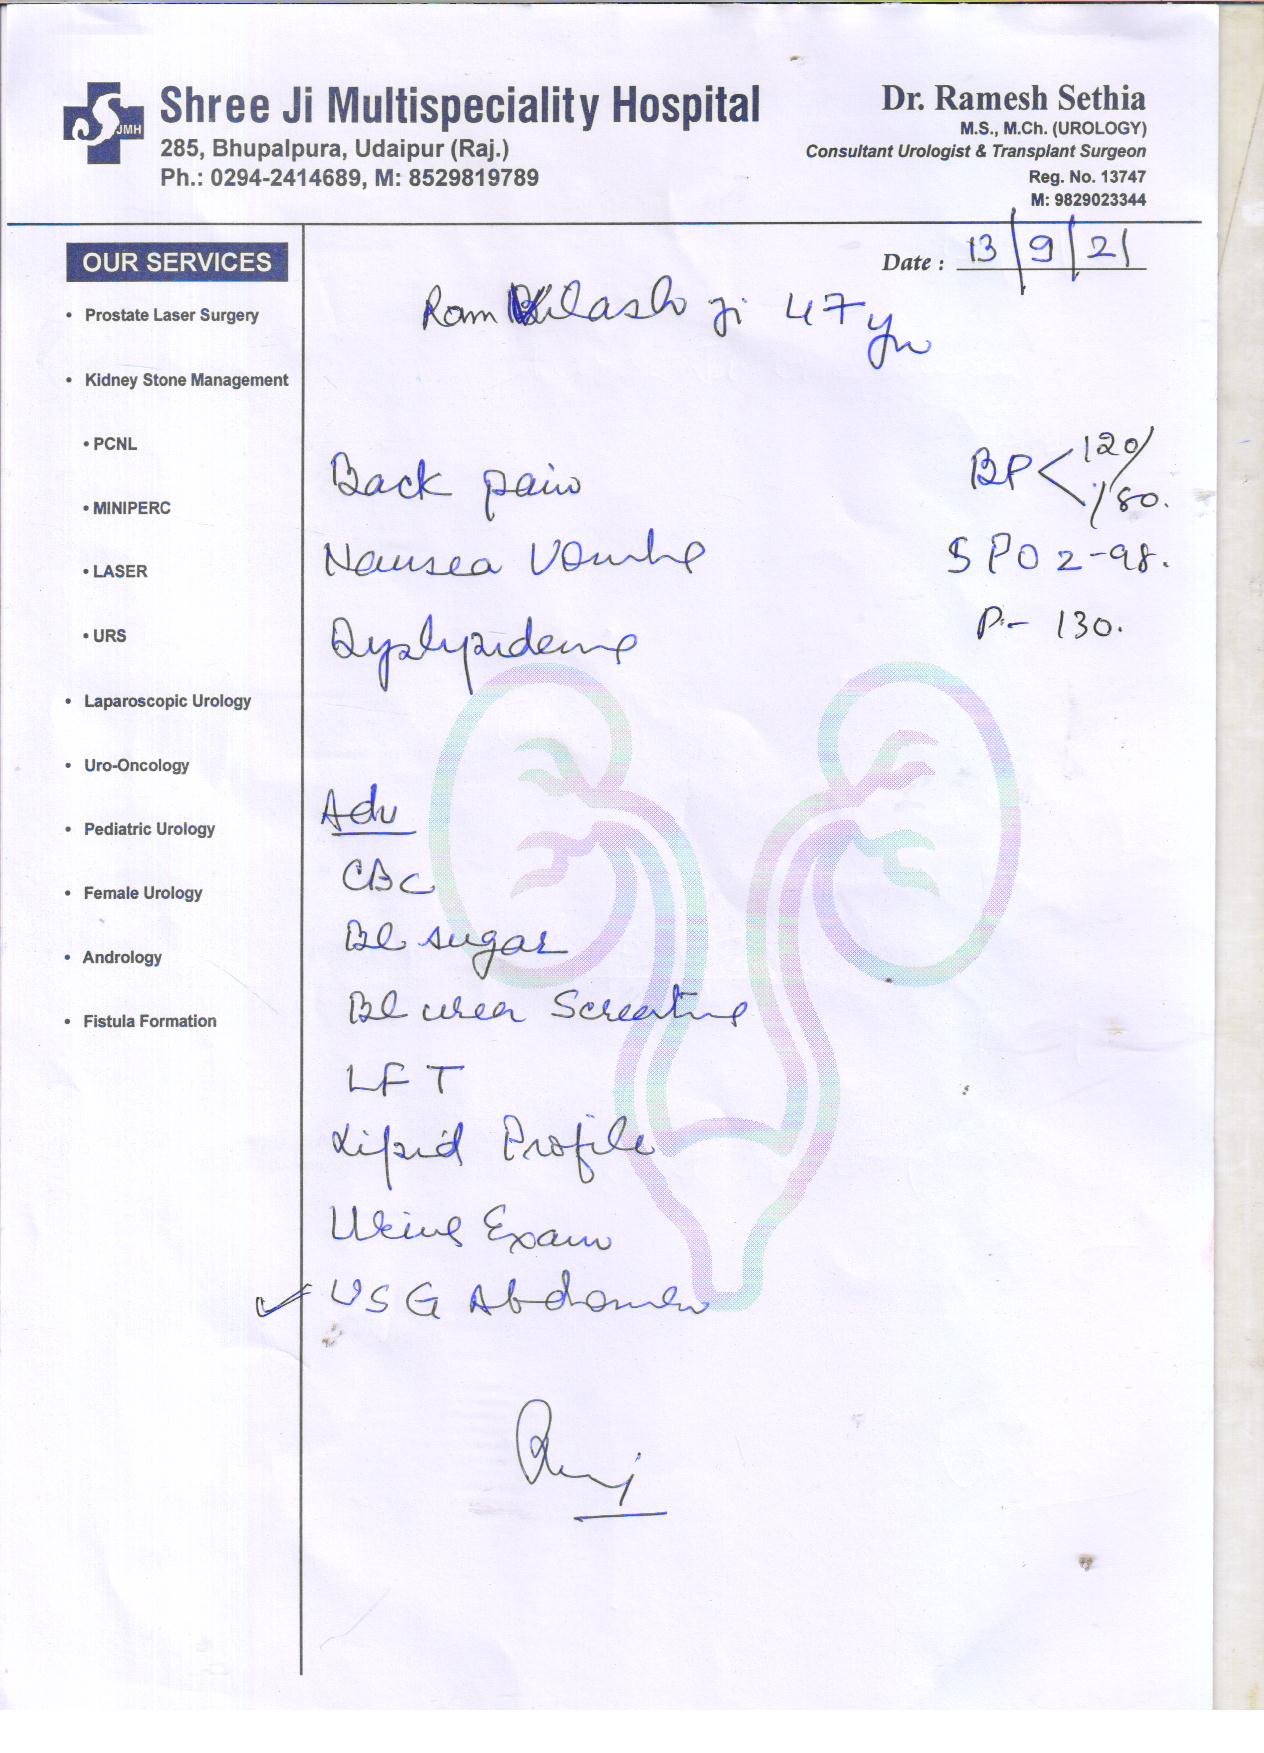 JMH
Shree Ji Multispeciality Hospital
285, Bhupalpura, Udaipur (Raj.)
Ph.: 0294-2414689, M: 8529819789
Dr. Ramesh Sethia
M.S., M.Ch. (UROLOGY)
Consultant Urologist & Transplant Surgeon
Reg. No. 13747
M: 9829023344
Date : 13/9/21
OUR SERVICES
• Prostate Laser Surgery
• Kidney Stone Management
• PCNL
• MINIPERC
• LASER
• URS
• Laparoscopic Urology
• Uro-Oncology
• Pediatric Urology
• Female Urology
• Andrology
• Fistula Formation
Ram ji 47 yr
BP < 120/
/80.
SPO2-98.
P.- 130.
Back pain
Nausea Vomiting
Dyslipidemia
Adv
CBC
Bl sugar
Bl urea Screatine
LFT
Lipid Profile
Urine Exam
✓ USG Abdomen